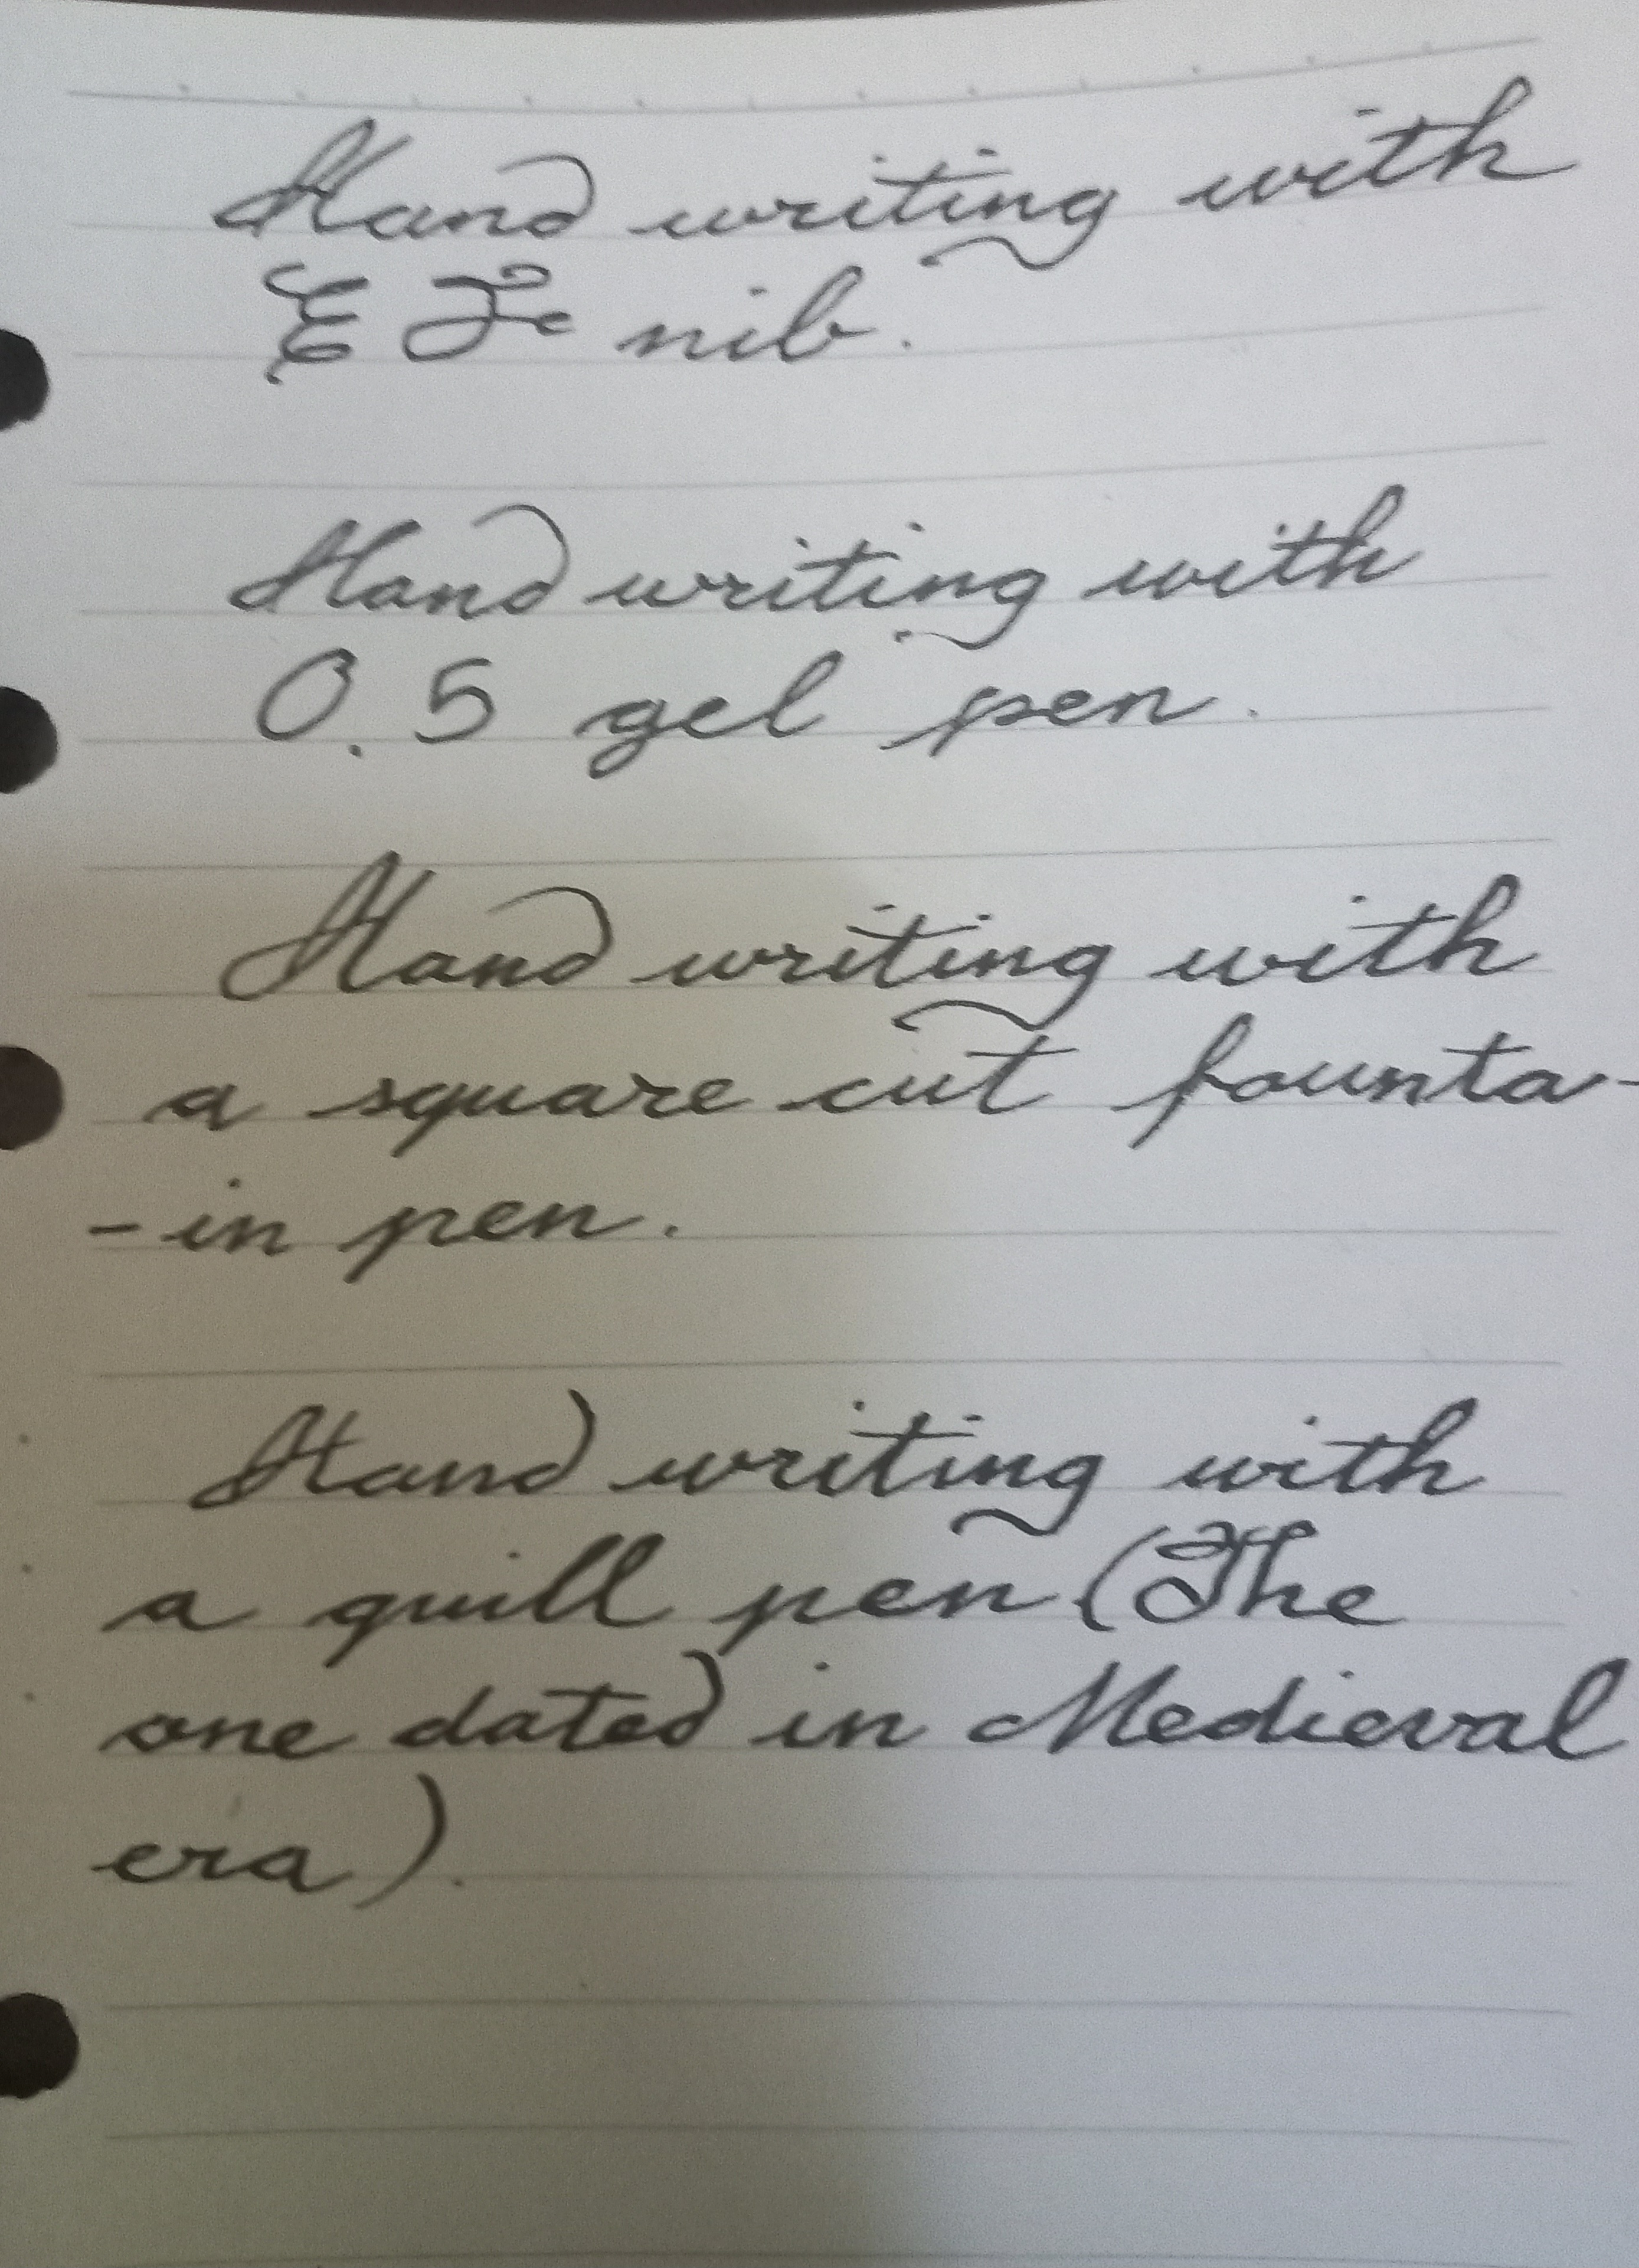 Hand writing with
E F nib.
Hand writing with
0.5 gel pen.
Hand writing with
a square cut founta-
-in pen.
Hand writing with
a quill pen (The
one dated in Medieval
era).